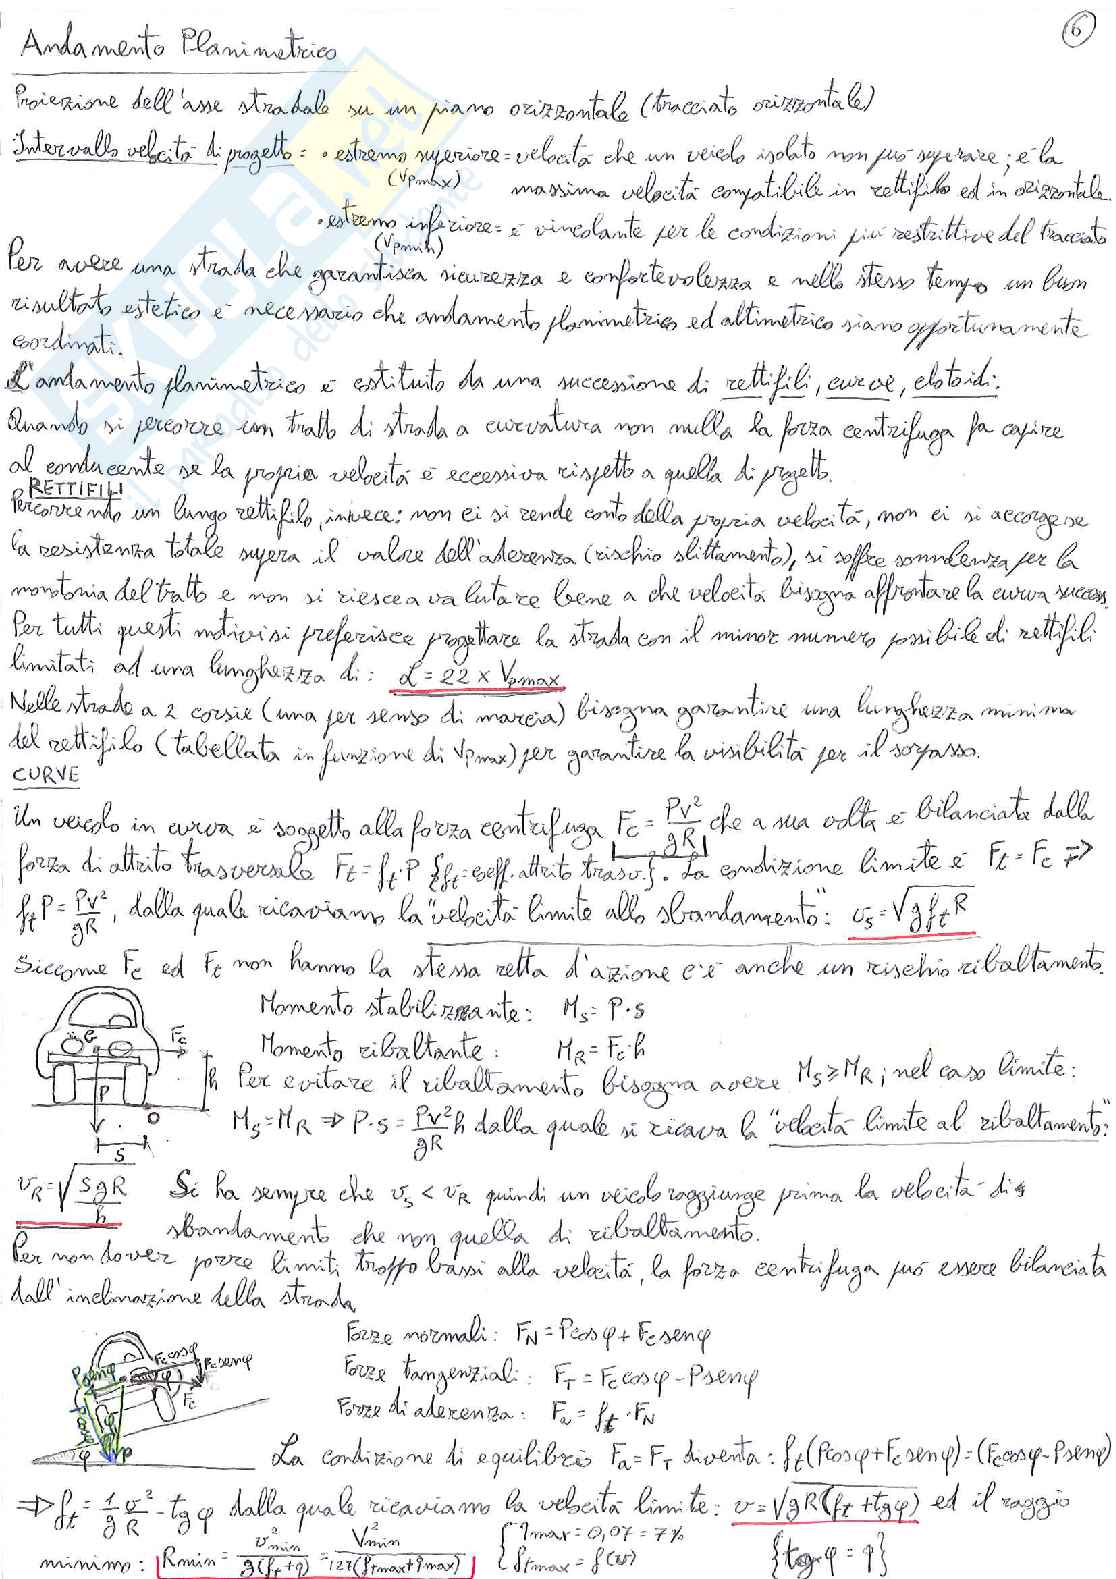 6
Andamento Planimetrico
Proiezione dell'asse stradale su un piano orizzontale (tracciato orizzontale)
Intervallo velocità di progetto: • estremo superiore = velocità che un veicolo isolato non può superare; è la
(Vpmax) massima velocità compatibile in rettifilo ed in orizzontale.
• estremo inferiore = è vincolante per le condizioni più restrittive del tracciato
(Vpmin)
Per avere una strada che garantisca sicurezza e confortevolezza e nello stesso tempo un buon
risultato estetico è necessario che andamento planimetrico ed altimetrico siano opportunamente
coordinati.
L'andamento planimetrico è costituito da una successione di rettifili, curve, clotoidi.
Quando si percorre un tratto di strada a curvatura non nulla la forza centrifuga fa capire
al conducente se la propria velocità è eccessiva rispetto a quella di progetto.
RETTIFILI
Percorrendo un lungo rettifilo, invece: non ci si rende conto della propria velocità, non ci si accorge se
la resistenza totale supera il valore dell'aderenza (rischio slittamento), si soffre sonnolenza per la
monotonia del tratto e non si riesce a valutare bene a che velocità bisogna affrontare la curva success.
Per tutti questi motivi si preferisce progettare la strada con il minor numero possibile di rettifili
limitati ad una lunghezza di: L = 22 x Vpmax
Nelle strade a 2 corsie (una per senso di marcia) bisogna garantire una lunghezza minima
del rettifilo (tabellata in funzione di Vpmax) per garantire la visibilità per il sorpasso.
CURVE
Un veicolo in curva è soggetto alla forza centrifuga Fc = Pv²/gR che a sua volta è bilanciata dalla
forza di attrito trasversale Ft = ft·P {ft = coeff. attrito trasv.}. La condizione limite è Ft = Fc ⇒
ftP = Pv²/gR, dalla quale ricaviamo la "velocità limite allo sbandamento: vs = √gftR
Siccome Fc ed Ft non hanno la stessa retta d'azione c'è anche un rischio ribaltamento.
Momento stabilizzante: Ms = P·s
Momento ribaltante: MR = Fc·h
G Fc h P O S
Per evitare il ribaltamento bisogna avere Ms ≥ MR; nel caso limite:
Ms = MR ⇒ P·s = Pv²/gR h dalla quale si ricava la "velocità limite al ribaltamento":
vR = √sgR/h Si ha sempre che vs < vR quindi un veicolo raggiunge prima la velocità di
sbandamento che non quella di ribaltamento.
Per non dover porre limiti troppo bassi alla velocità, la forza centrifuga può essere bilanciata
dall'inclinazione della strada
Forze normali: FN = Pcosφ + Fcsenφ
Forze tangenziali: FT = Fccosφ - Psenφ
Forze di aderenza: Fa = ft·FN
Fccosφ Fcsenφ Psenφ Fc Pcosφ φ P
La condizione di equilibrio Fa = FT diventa: ft(Pcosφ + Fcsenφ) = (Fccosφ - Psenφ)
⇒ ft = 1/g v²/R - tgφ dalla quale ricaviamo la velocità limite: v = √gR(ft + tgφ) ed il raggio
minimo: Rmin = v²min/g(ft+q) = V²min/127(ftmax+qmax) { qmax = 0,07 = 7% ftmax = f(v) {tgφ = q}